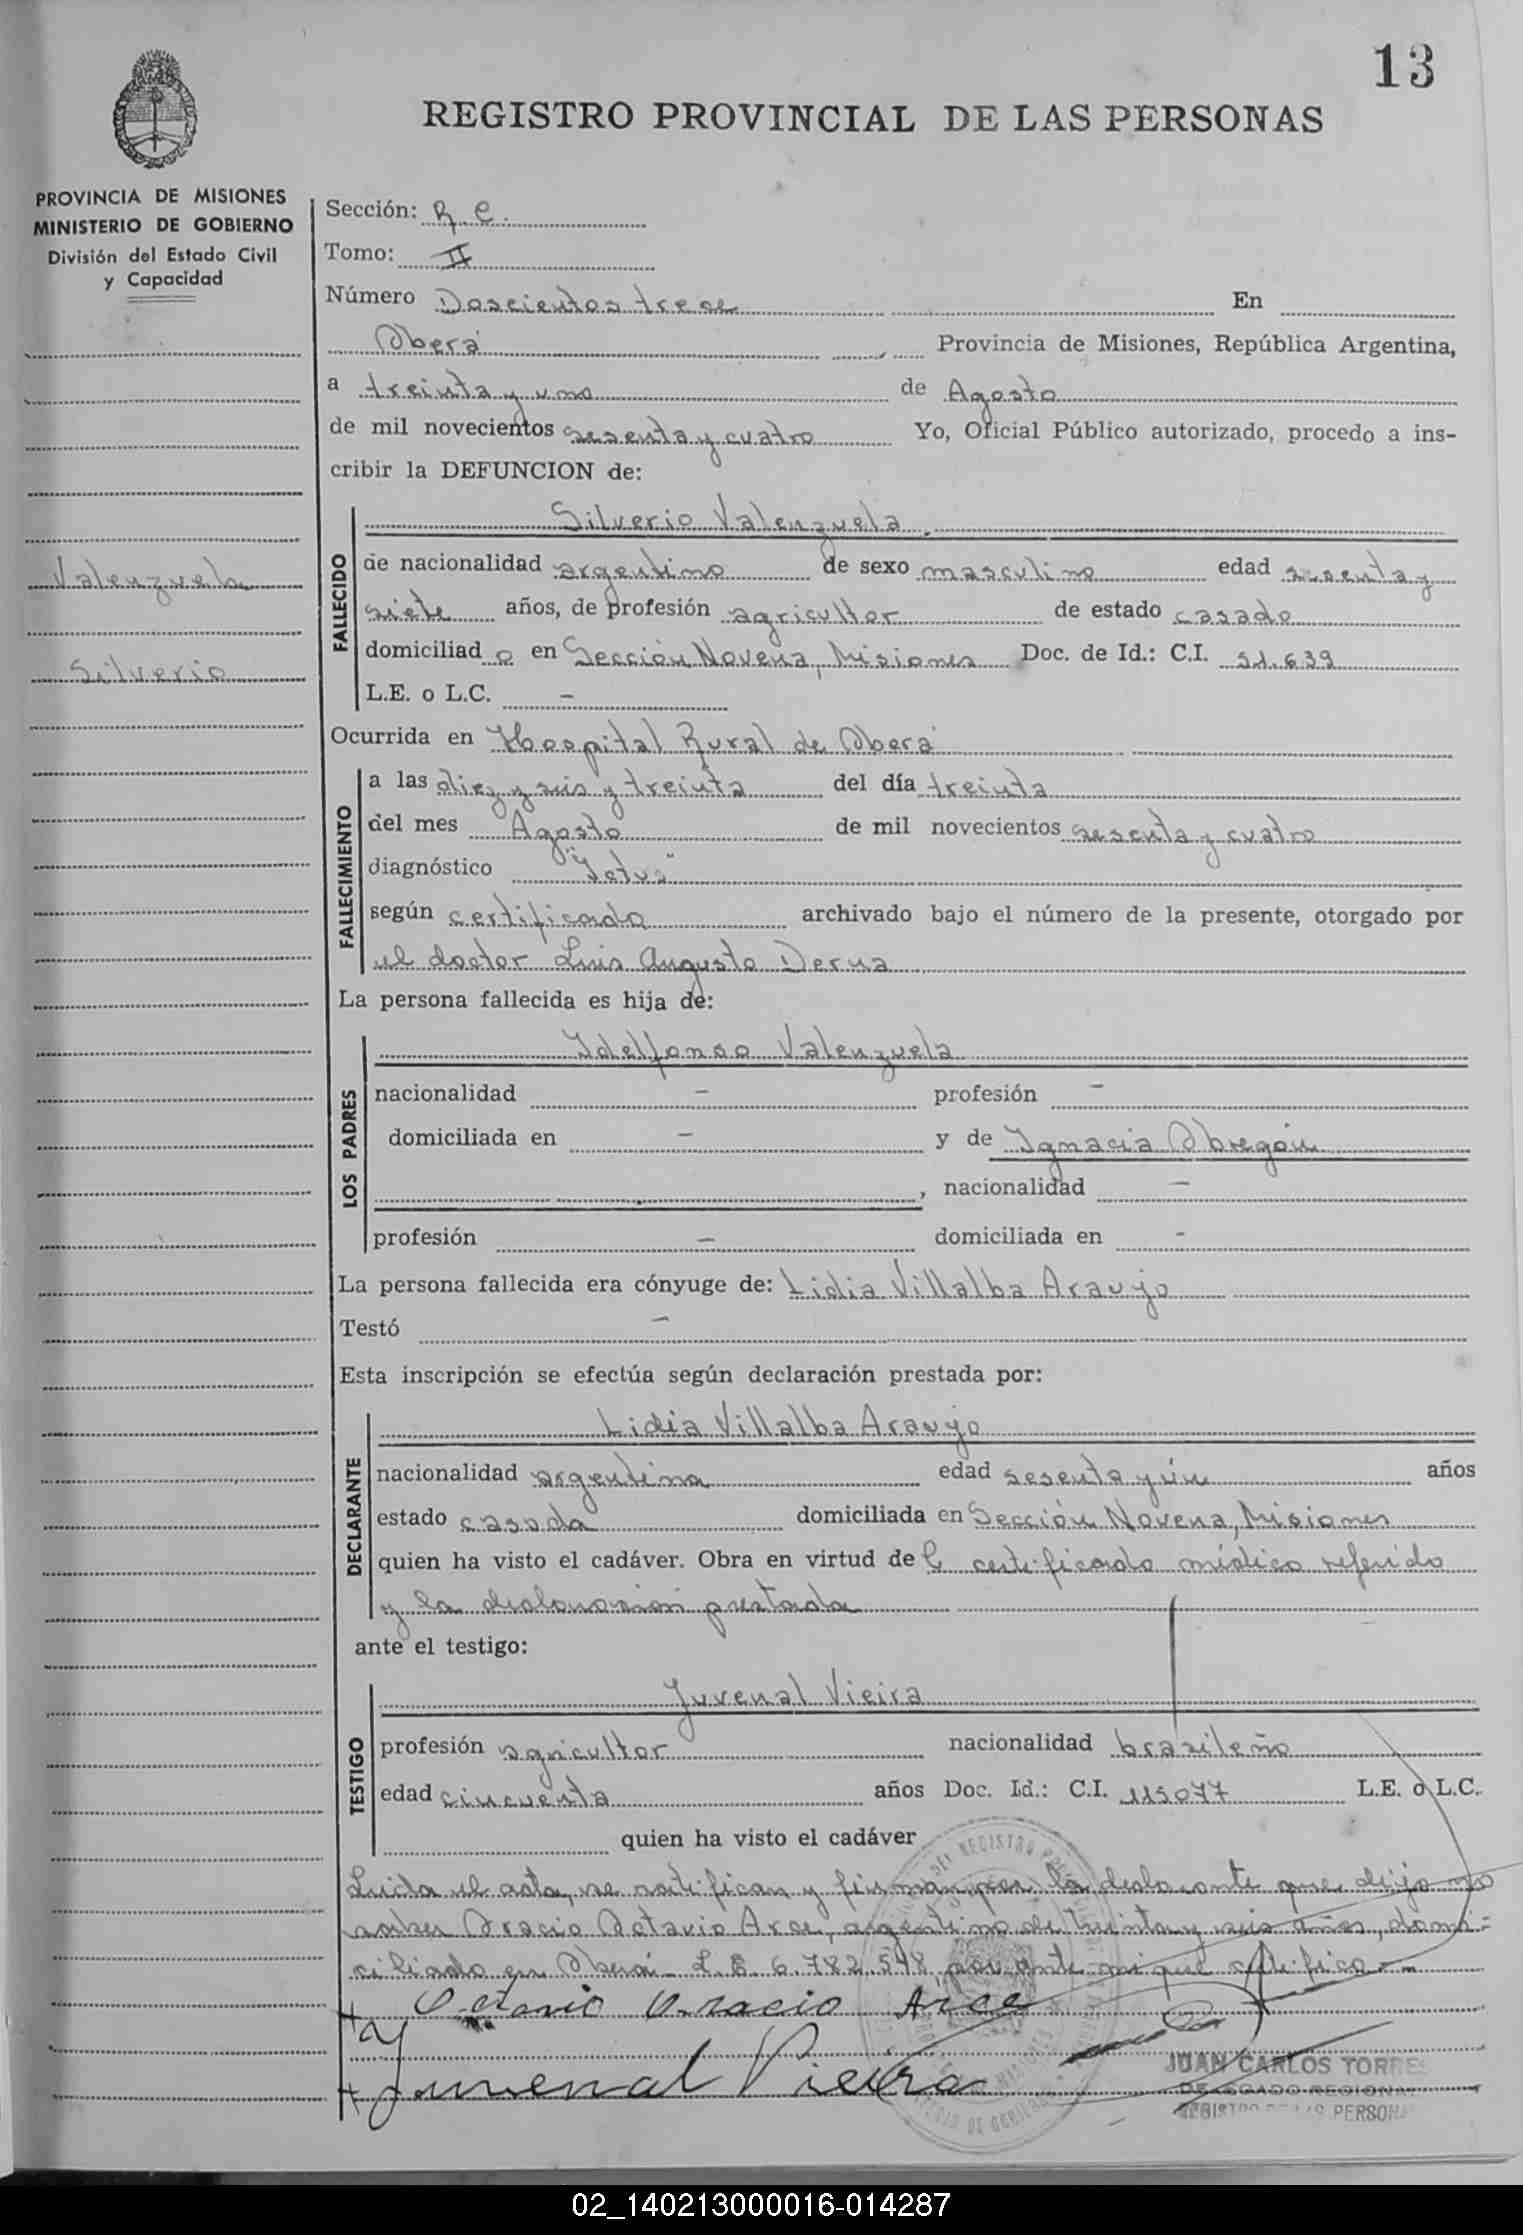 13
REGISTRO PROVINCIAL DE LAS PERSONAS
PROVINCIA DE MISIONES
MINISTERIO DE GOBIERNO
División del Estado Civil
y Capacidad
Valenzuela
Silverio
Sección: R. C.
Tomo: II
Número Doscientos trece En
Oberá Provincia de Misiones, República Argentina,
a treinta y uno de Agosto
de mil novecientos sesenta y cuatro Yo, Oficial Público autorizado, procedo a ins-
cribir la DEFUNCION de:
FALLECIDO
Silverio Valenzuela
de nacionalidad argentino de sexo masculino edad sesenta y
siete años, de profesión agricultor de estado casado
domiciliad o en Sección Novena, Misiones Doc. de Id.: C.I. 51.639
L.E. o L.C. -
Ocurrida en Hospital Rural de Oberá
FALLECIMIENTO
a las diez y seis y treinta del día treinta
del mes Agosto de mil novecientos sesenta y cuatro
diagnóstico "Ictus"
según certificado archivado bajo el número de la presente, otorgado por
el doctor Luis Augusto Derna
La persona fallecida es hija de:
LOS PADRES
Idelfonso Valenzuela
nacionalidad - profesión -
domiciliada en - y de Ignacia Obregón
, nacionalidad -
profesión - domiciliada en -
La persona fallecida era cónyuge de: Lidia Villalba Araujo
Testó -
Esta inscripción se efectúa según declaración prestada por:
DECLARANTE
Lidia Villalba Araujo
nacionalidad argentina edad sesenta y un años
estado casada domiciliada en Sección Novena, Misiones
quien ha visto el cadáver. Obra en virtud de el certificado médico referido
y la declaración prestada
ante el testigo:
TESTIGO
Juvenal Vieira
profesión agricultor nacionalidad brasileño
edad cincuenta años Doc. Id.: C.I. 115077 L.E. o L.C.
quien ha visto el cadáver
Leída el acta, se ratifican y firman, por la declarante que dijo no
saber Oracio Octavio Arce, argentino de treinta y seis años, domi-
ciliado en Oberá L.E 6.782.548, por ante mi que certifico.-
Octavio Oracio Arce
Juvenal Vieira
JUAN CARLOS TORRES
DELEGADO REGIONAL
REGISTRO DE LAS PERSONAS
02_140213000016-014287